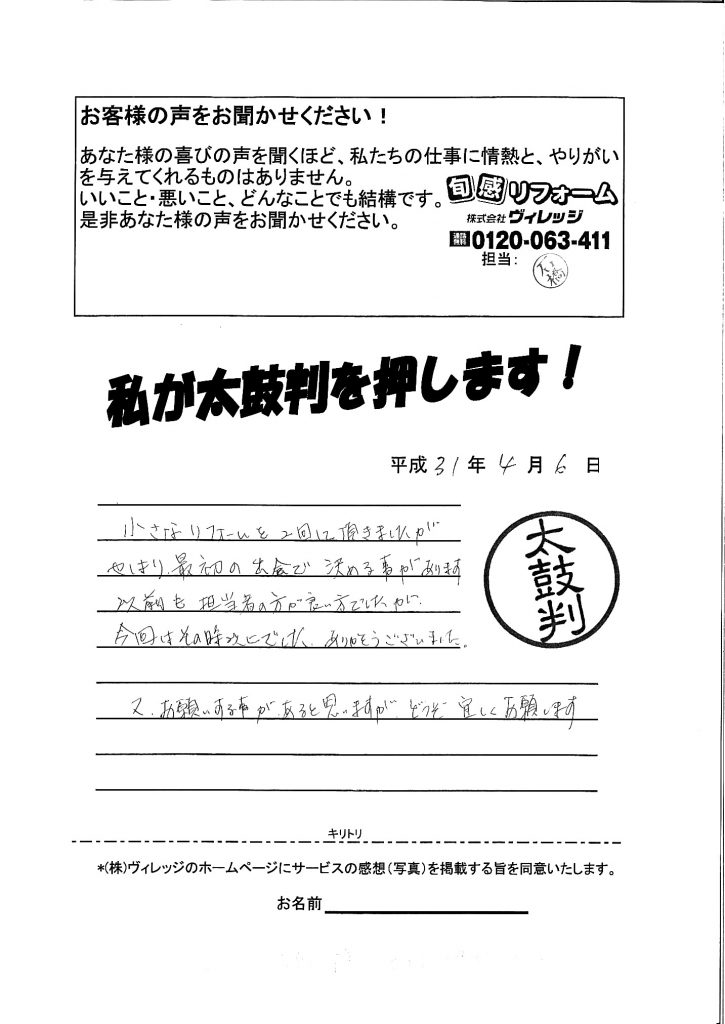 お客様の声をお聞かせください！
あなた様の喜びの声を聞くほど、私たちの仕事に情熱と、やりがい
を与えてくれるものはありません。
いいこと・悪いこと、どんなことでも結構です。
是非あなた様の声をお聞かせください。
旬感リフォーム
株式会社ヴィレッジ
0120-063-411
担当：
私が太鼓判を押します！
平成31年4月6日
小さなリフォームを2回して頂きましたが
やはり最初の出会で決める事があります
以前も担当者の方が良い方でしたが、
今回はその時以上でした、ありがとうございました。
太鼓判
又、お願いする事があると思いますが、どうぞ宜しくお願します
キリトリ
*(株)ヴィレッジのホームページにサービスの感想（写真）を掲載する旨を同意いたします。
お名前